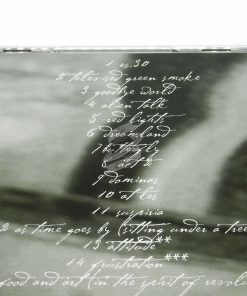 1 es.30
2 teles red green smoke
3 goodbye world
4 alien talk
5 red lights
6 dreamland
7 butterfly
8 act
9 dominas
10 at les
11 suspiria
2 as time goes by (sitting under a tree
13 attitude**
14 frustration***
food and art (in the spirit of revolu